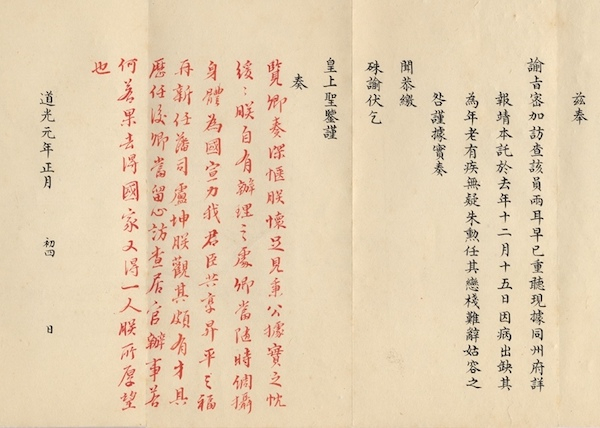 茲奉
諭旨密加訪查該員兩耳早已重聽現據同州府詳
報靖本託於去年十二月十五日因病出缺其
為年老有疾無疑朱勳任其戀棧難辭姑容之
咎謹據實奏
聞恭繳
硃諭伏乞
皇上聖鑒謹
奏
覽卿奏深愜朕懷足見秉公據實之忱
緩緩朕自有辦理之處卿當隨時調攝
身體為國宣力我君臣共享昇平之福
再新任藩司盧坤朕觀其頗有才具
歷任後卿當留心訪查居官辦事若
何若果去得國家又得一人朕所厚望
也
道光元年正月 初四 日